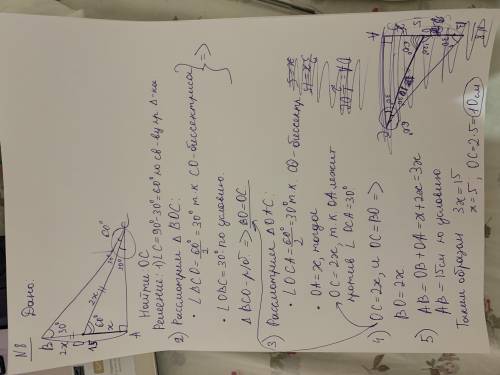 N8
Дано:
B
30°
2x
O
60°
2x
x
15
A
C
30°
60°
Найти OC
Решение: 1) ∠C=90°-30°=60° по св-ву пр. Δ-ка
2) Рассмотрим ΔBOC:
• ∠DCO=60°/2=30° т.к CO-биссектриса
• ∠OBC=30° по условию.
=>
ΔBCO-р/б => BO=OC
3) Рассмотрим ΔOAC:
• ∠OCA=60°/2=30° т.к. CO-биссектр
• OA=x, тогда
OC=2x, т.к OA лежит
против ∠OCA=30°
4) OC=2x, и OC=BO =>
BO=2x
5) AB=OB+OA=x+2x=3x
AB=15см по условию
Таким образом 3x=15
x=5, OC=2·5=10см